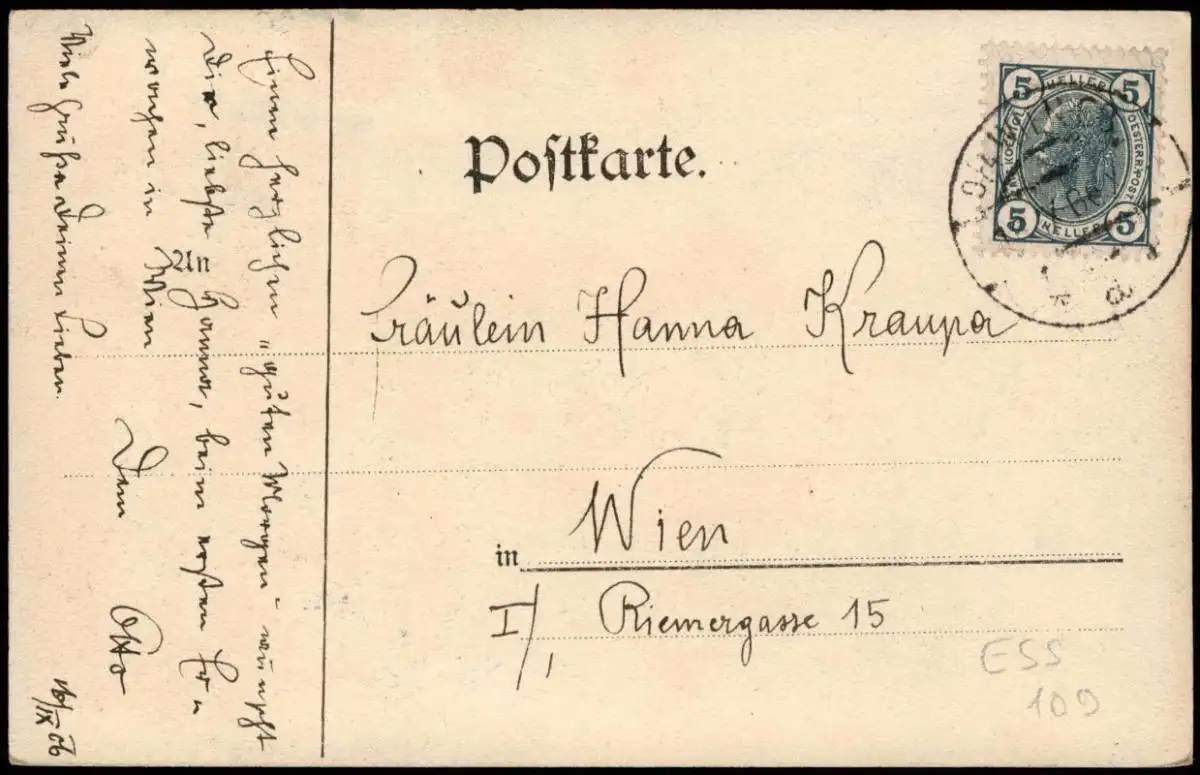 Postkarte.
An
Fräulein Hanna Kraupa
in Wien
I/, Riemergasse 15
Einen herzlichen "guten Morgen" wünscht
Dir, liebste Hanna, beim ersten Er-
wachen in Wien
Dein
Otto
Viele Grüße Deinen Lieben.
16/IX 06
5 HELLER 5
OESTERR.POST
5 HELLER 5
ESS
109